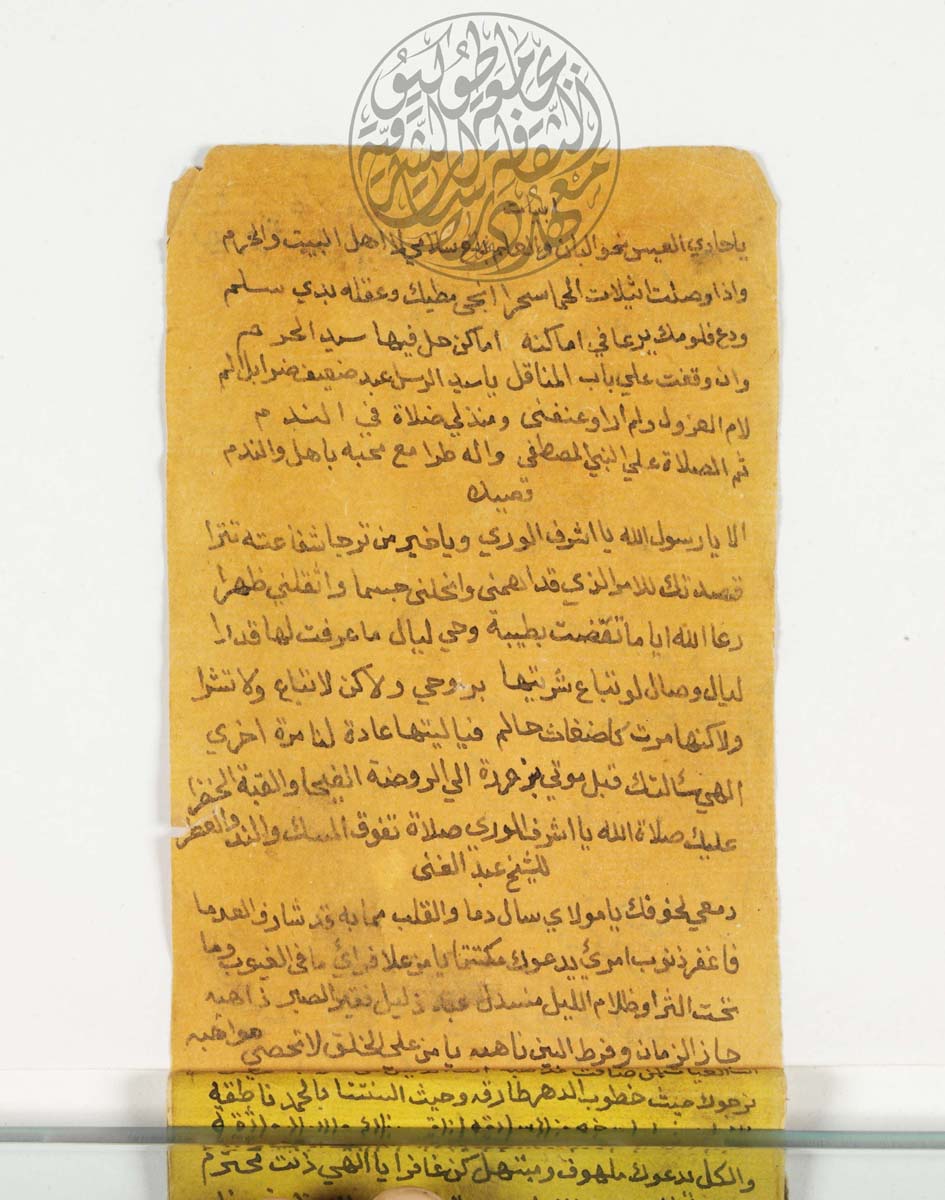 ابيات
يا حادي العيس نحو البان والعلم بلغ سلامي لا اهل البيت والحرم
واذا وصلت اثيلات الحما سحرا انجي مطيك وعقله بذي سلم
ودع قلومك يرعا في اماكنه اماكن حل فيها سيد الحرم
وان وقفت علي باب المناقل يا سيد الرسل عبد ضعيف
لام العزول وعنفني في الندم
ثم الصلاة علي النبي المصطفي واله طرا مع صحبه باهل والندم
قصيدك
الا يا رسول الله يا اشرف الوري ويا خير من ترجا شفاعته تترا
قصدتك للامر الزي قد اهمني وانحلني جسما واثقلني ظهرا
رعا الله اياما تقضت بطيبة وحي ليال ما عرفت لها قدرا
ليال وصال لو تباع شريتها بروحي ولاكن لا تباع ولا تشرا
ولاكنها مرت كاضغاث حالم فيا ليتها عادة لنا مرة اخري
الهي سئالتك قبل موتي بزورة الي الروضة الفيحا والقبة الخضرا
عليك صلاة الله يا اشرف الوري صلاة تفوق المسك والند والعطرا
للشيخ عبد الغني
دمعي لخوفك يا مولاي سال دما والقلب مما به قد شارف العدما
فاغفر ذنوب امرئ يدعوك مكتتما يا من علا فرائ ما في الغيوب وما
تحت الثرا وظلام الليل منسدل عبد ذليل فقير الصبر ذاهبه
جاز الزمان وفرط البين ناهبه يا من علي الخلق لا تحصي مواهبه
نرجوك حيث خطوب الدهر طارقه وحيث السنتنا بالحمد ناطقه
والكل يدعوك ملهوف ومبتهل كن غافرا يا الهي ذنب مجترم
جامعة طوكيو
معهد دراسات الثقافة الشرقية